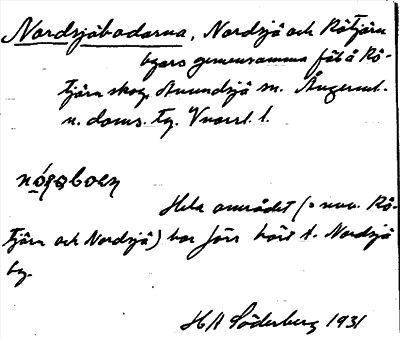 Nordsjöbodarna, Nordsjö och Rötjärn
byars gemensamma fäb å Rö-
tjärn skog, Anundsjö sn. Ångerml.
n. doms. tg. Vnorrl. l.
Hela området (
tjärn och Nordsjö) har förr hört t. Nordsjö
by.
HA Söderberg 1931